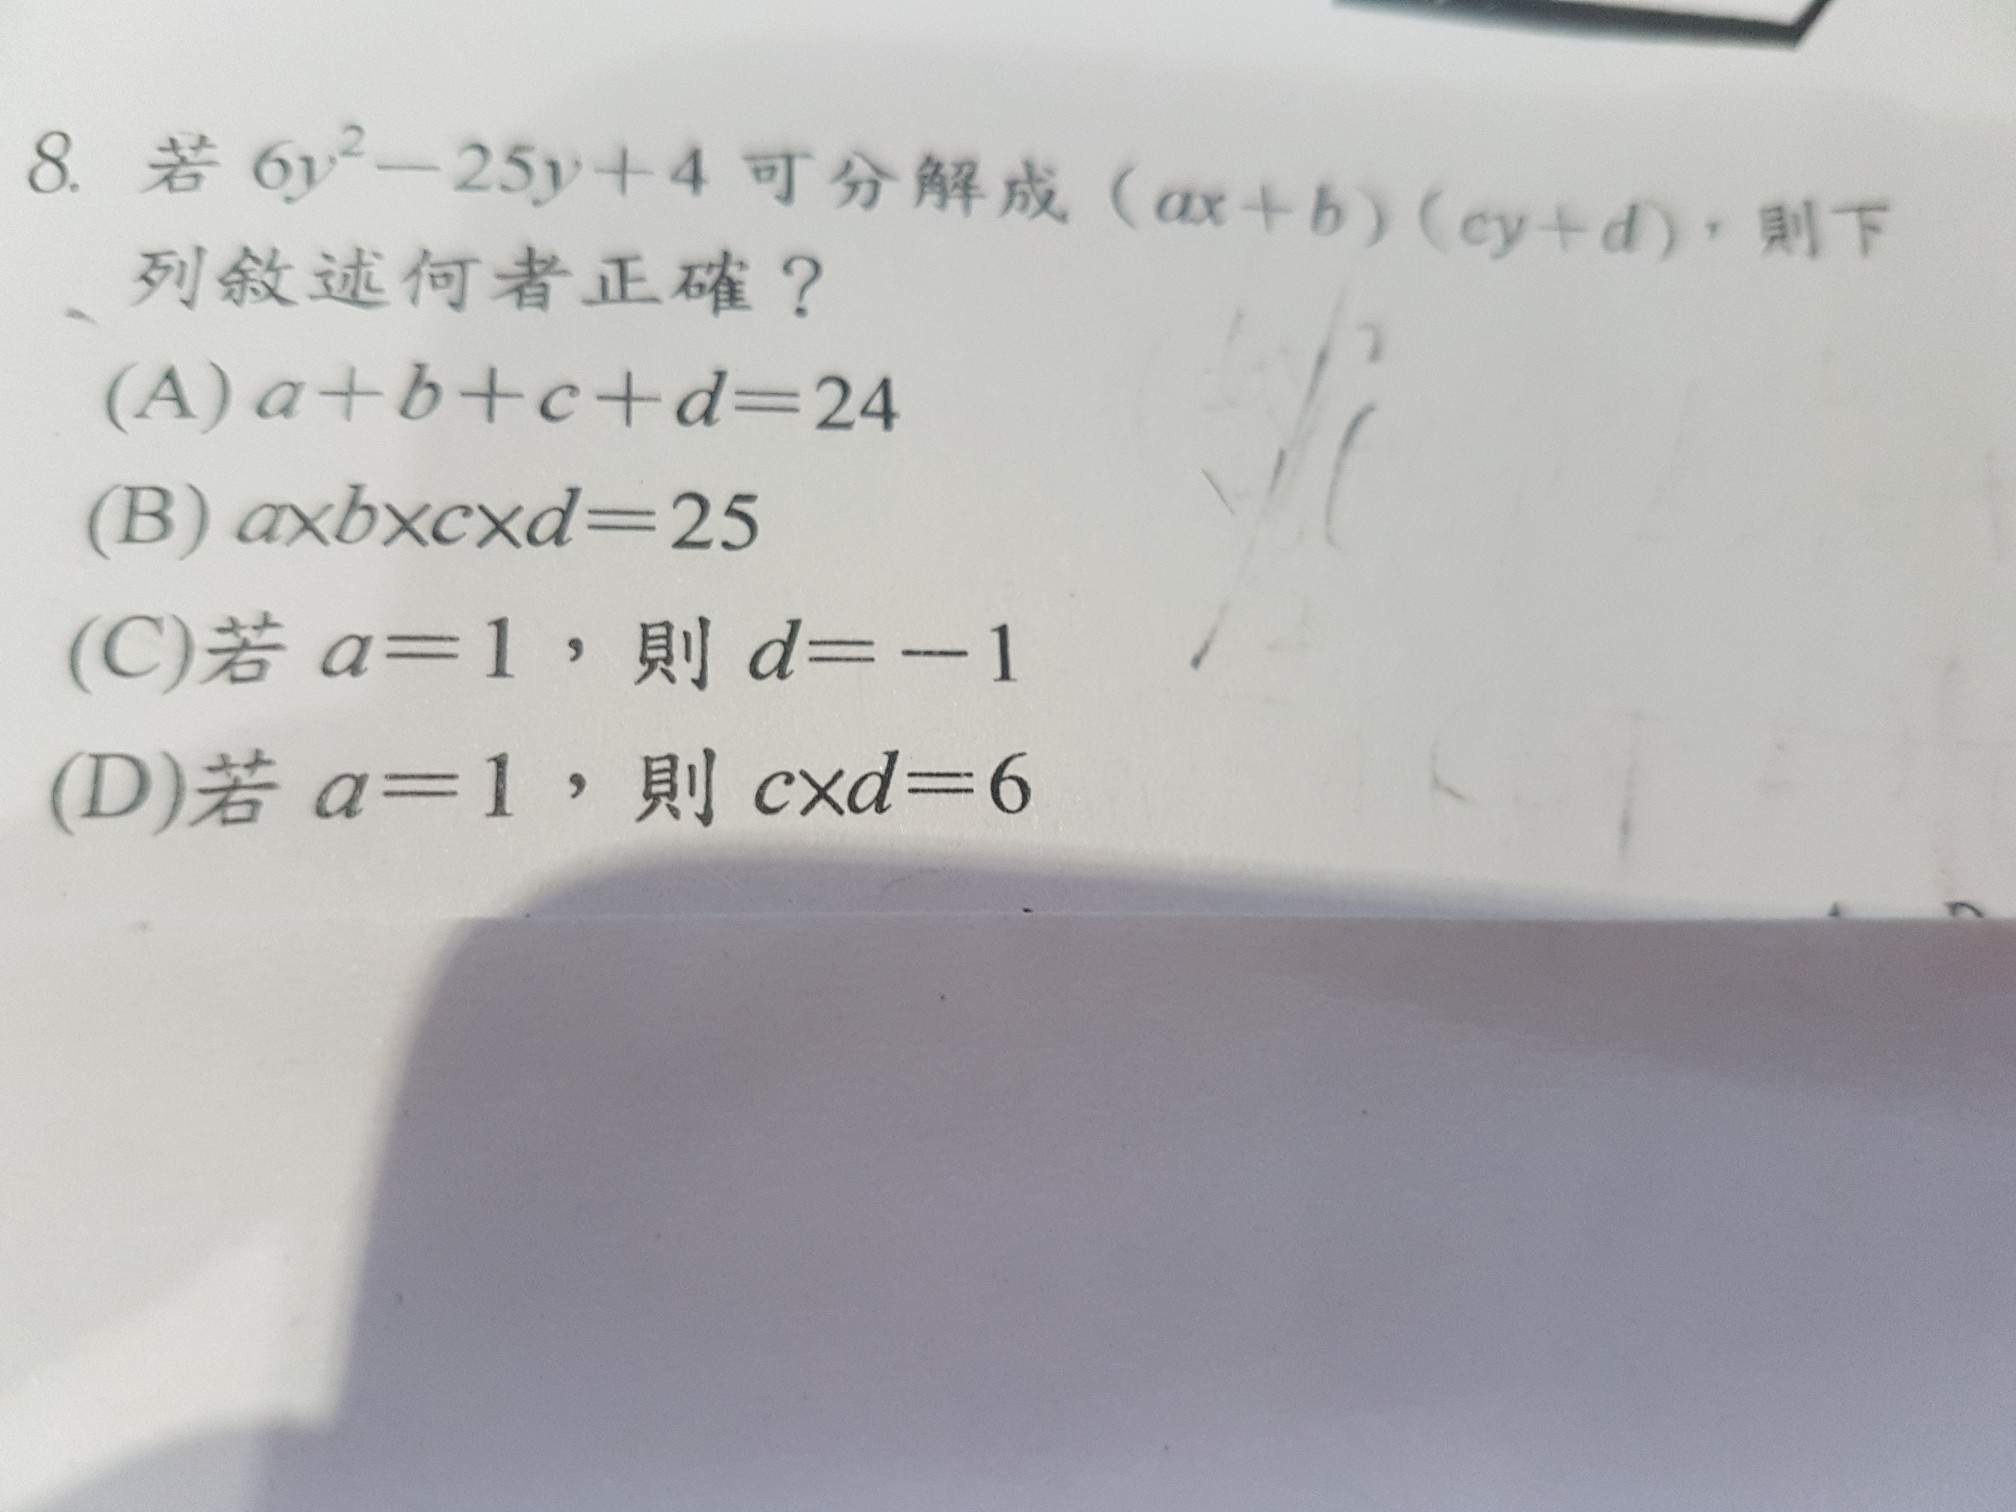 8. 若 6y²－25y＋4 可分解成（ax＋b）（cy＋d），則下
列敘述何者正確？
(A) a＋b＋c＋d＝24
(B) a×b×c×d＝25
(C)若 a＝1，則 d＝－1
(D)若 a＝1，則 c×d＝6